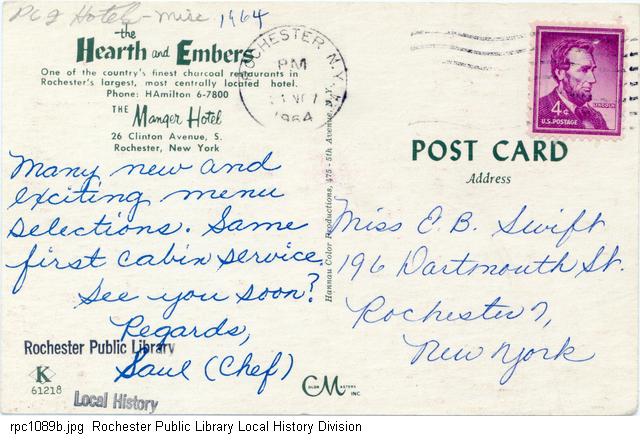 Pc 2 Hotels - Misc 1964
the
Hearth and Embers
One of the country's finest charcoal restaurants in
Rochester's largest, most centrally located hotel.
Phone: HAmilton 6-7800
THE
Manger Hotel
26 Clinton Avenue, S.
Rochester, New York
Many new and
exciting menu
selections. Same
first cabin service.
See you soon?
Regards,
Saul (Chef)
Rochester Public Library
K
61218
Local History
ROCHESTER N.Y.
PM
1964
Hannau Color Productions, 475 - 5th Avenue, N.Y.
CM
COLOR MASTERS INC.
LINCOLN
4¢
U.S. POSTAGE
POST CARD
Address
Miss E. B. Swift
196 Dartmouth St.
Rochester 7,
New York
rpc1089b.jpg Rochester Public Library Local History Division